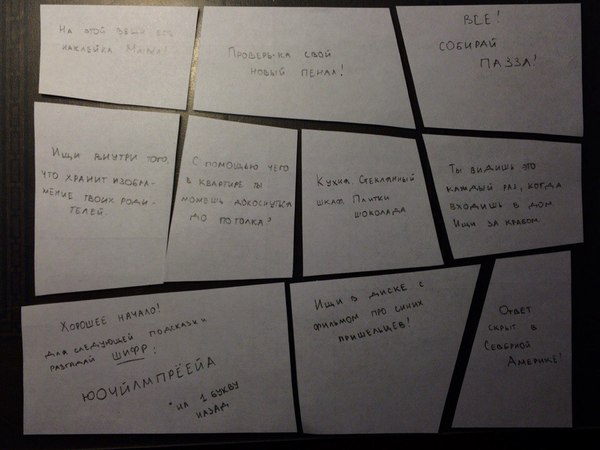 НА ЭТОЙ ВЕЩИ ЕСТЬ
НАКЛЕЙКА
ПРОВЕРЬ-КА СВОЙ
НОВЫЙ ПЕНАЛ!
ВСЕ!
СОБИРАЙ
ПАЗЗЛ!
ИЩИ ВНУТРИ ТОГО,
ЧТО ХРАНИТ ИЗОБРА-
ЖЕНИЕ ТВОИХ РОДИ-
ТЕЛЕЙ.
С ПОМОЩЬЮ ЧЕГО
В КВАРТИРЕ ТЫ
МОЖЕШЬ ДОКОСНУТЬСЯ
ДО ПОТОЛКА?
КУХНЯ. СТЕКЛЯННЫЙ
ШКАФ. ПЛИТКИ
ШОКОЛАДА
ТЫ ВИДИШЬ ЭТО
КАЖДЫЙ РАЗ, КОГДА
ВХОДИШЬ В ДОМ
ИЩИ ЗА КРАБОМ
ХОРОШЕЕ НАЧАЛО!
ДЛЯ СЛЕДУЮЩЕЙ ПОДСКАЗКИ
РАЗГАДАЙ ШИФР:
ЮОЧЙЛМПРЁЕЙА
*НА 1 БУКВУ
НАЗАД
ИЩИ В ДИСКЕ С
ФИЛЬМОМ ПРО СИНИХ
ПРИШЕЛЬЦЕВ!
ОТВЕТ
СКРЫТ В
СЕВЕРНОЙ
АМЕРИКЕ!